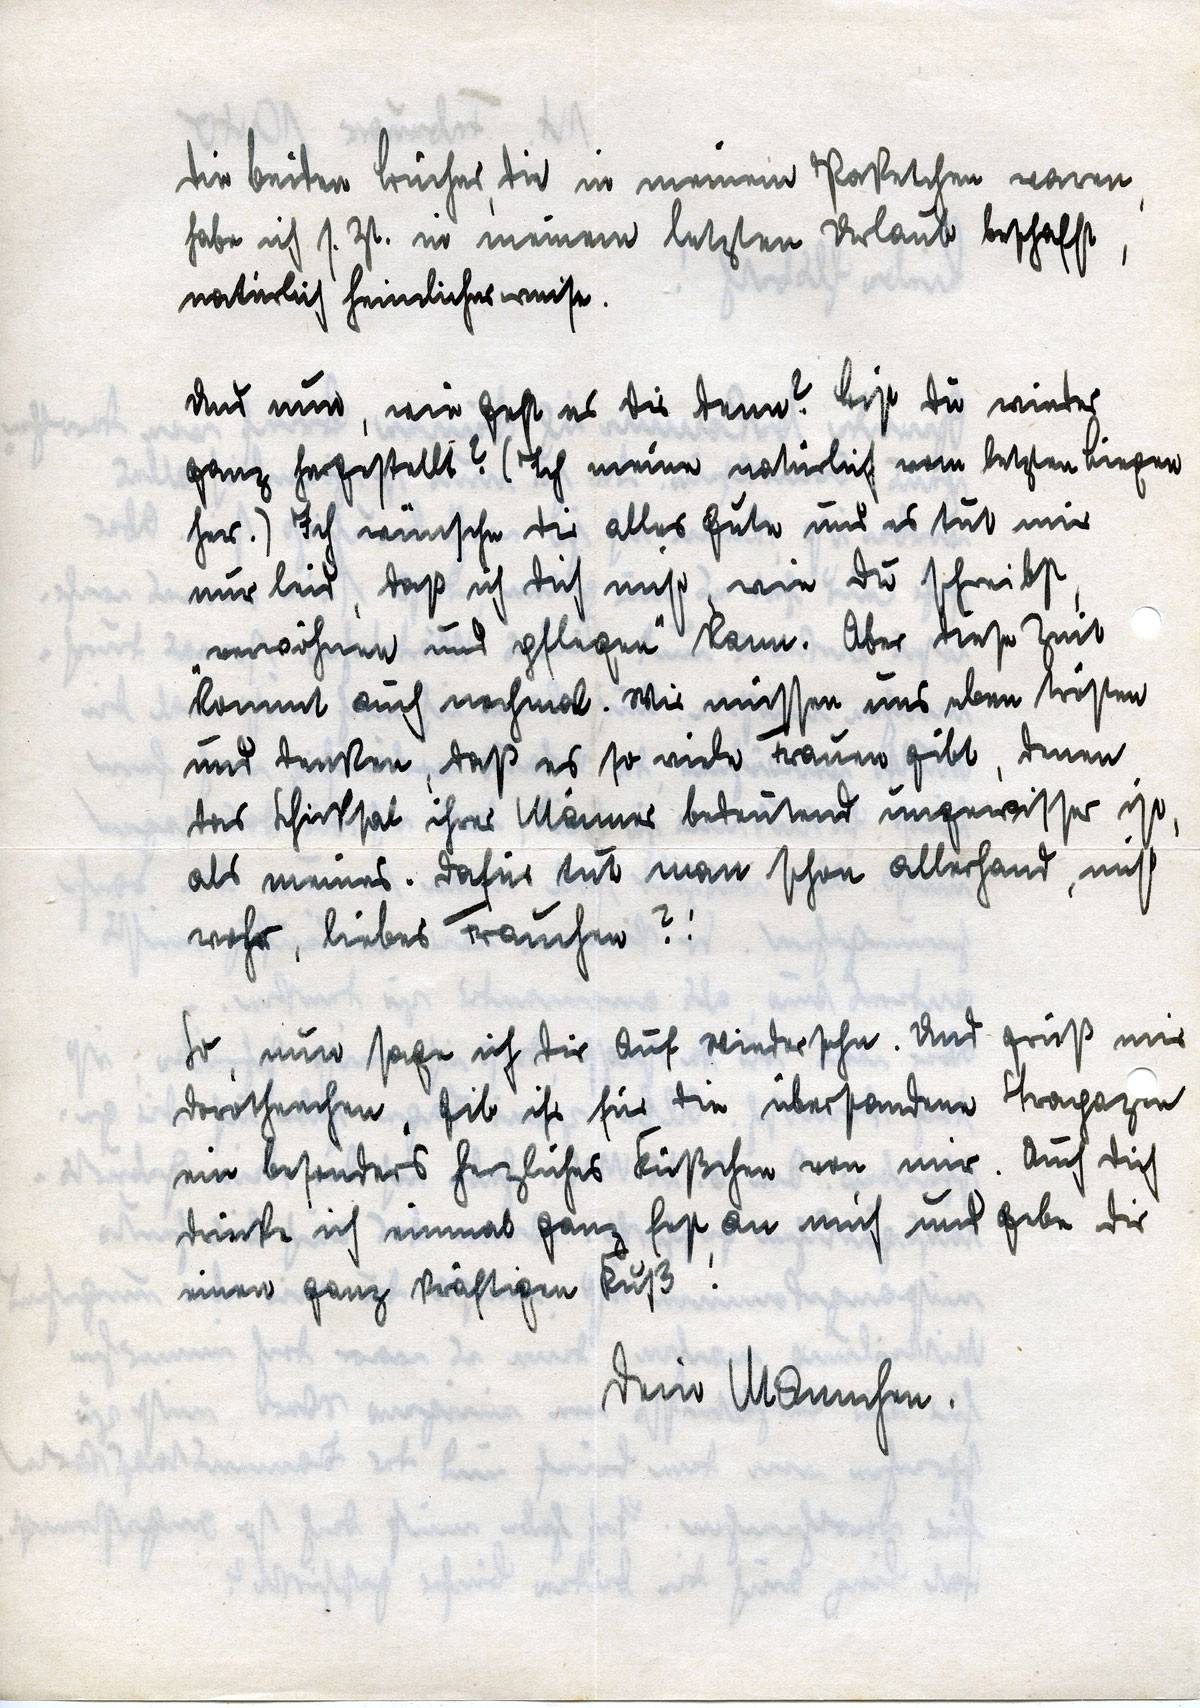 Die beiden Bücher, die in meinem Paketchen waren,
habe ich s. Zt. in meinem letzten Urlaub beschafft,
natürlich heimlicherweise.
Und nun, wie geht es Dir denn? Bist Du wieder
ganz hergestellt? (Ich meine natürlich vom letzten Liegen
her.) Ich wünsche Dir alles Gute und es tut mir
nur leid, daß ich Dich nicht, wie Du schreibst,
"verwöhnen und pflegen" kann. Aber diese Zeit
kommt auch nochmal. Wir müssen uns eben trösten
und denken, daß es so viele Frauen gibt, denen
das Schicksal ihrer Männer bedeutend ungewisser ist,
als meines. Dafür tut man schon allerhand, nicht
wahr, liebes Frauchen?!
So, nun sage ich Dir Auf Wiedersehn. Und grüß mir
Dorotheechen, gib ihr für die überstandene Strapazen
ein besonders herzliches Küßchen von mir. Auch Dich
drücke ich einmal ganz fest an mich und gebe Dir
einen ganz kräftigen Kuß!
Dein Männchen.